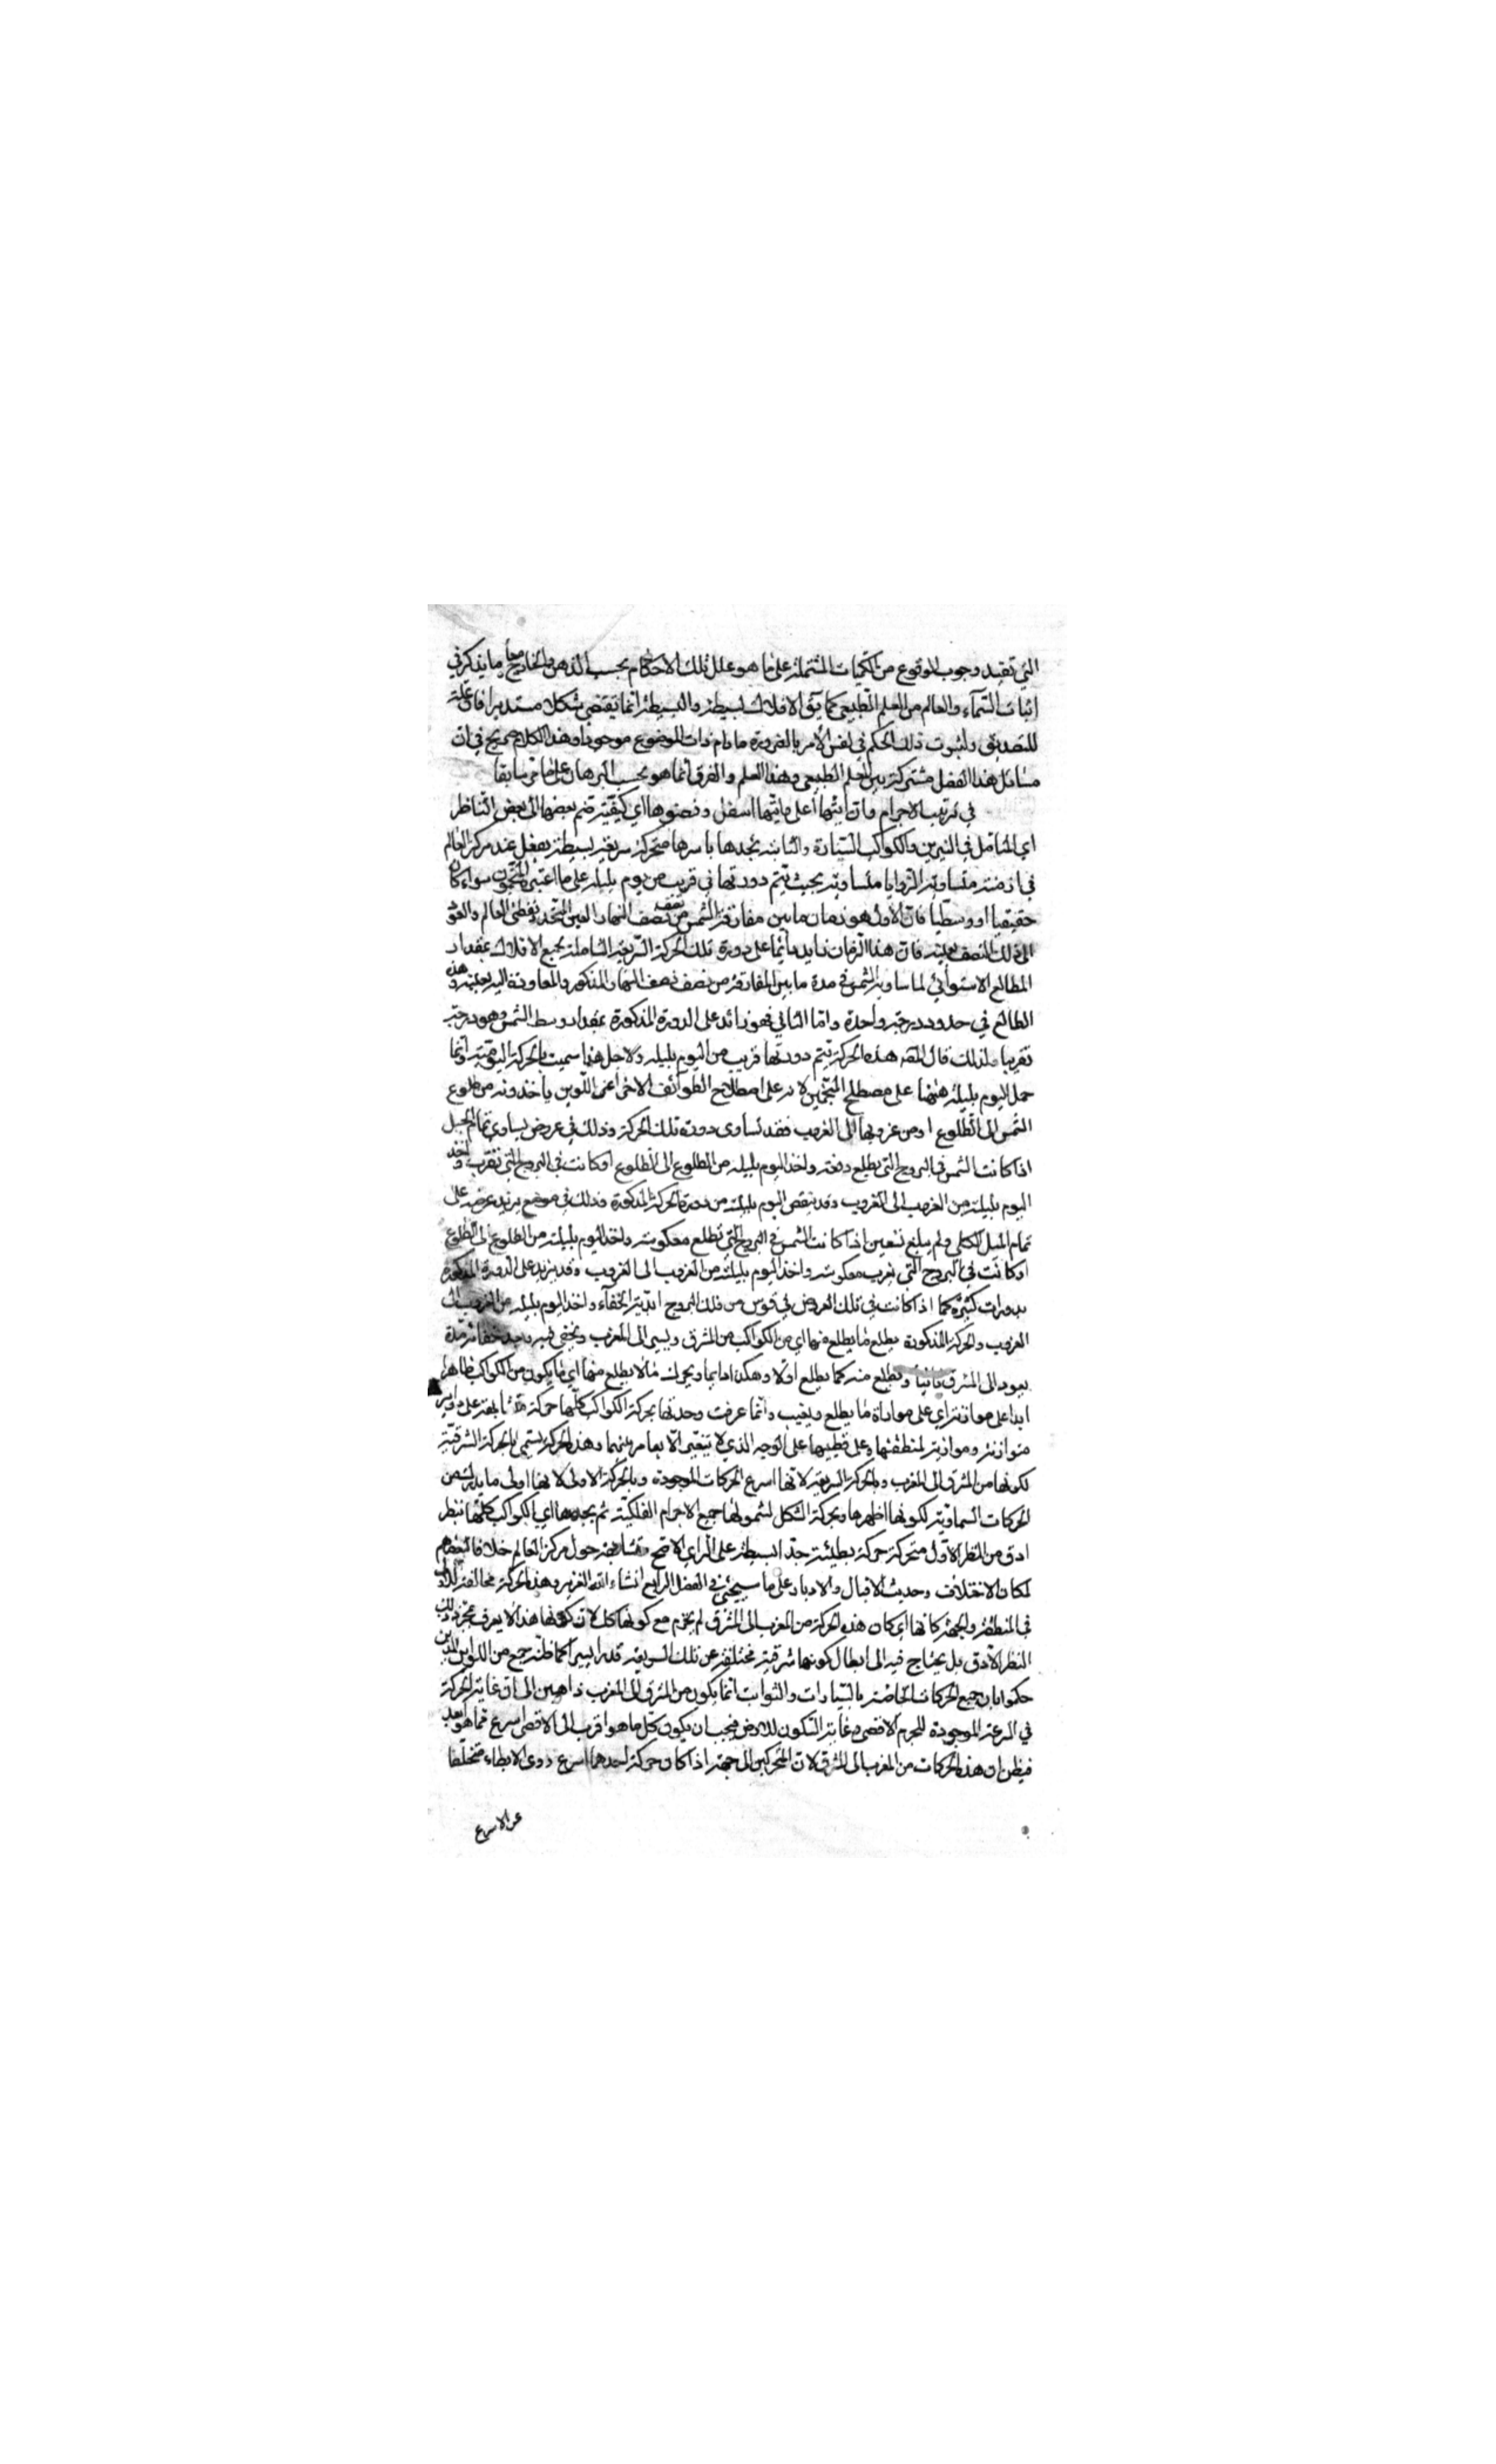 التي تفيد وجوب الوقوع من الكميات المشتملة على ما هو علل تلك الاحكام بحسب الذهن والخارج معا ما يذكر في
اثبات السماء والعالم من العلم الطبيعي كما يق الافلاك بسيطة والبسيطة انما يقتضي شكلا مستديرا فان علة
للتصديق ولثبوت ذلك الحكم في نفس الأمر بالضرورة ما دام ذات الموضوع موجودا وهذا الكلام صريح في ان
مسائل هذا الفصل مشتركة بين العلم الطبيعي وهذا العلم والفرق انما هو بحسب البرهان على ما مر سابقا
في ترتيب الاجرام وان ايتها اعلى وايتها اسفل ونضدها اي كيفية ضم بعضها الى بعض الناظر
اي المتامل في النيرين والكواكب السيارة والثابتة يجدها باسرها متحركة سريعة بسيطة يفعل عند مركز العالم
في ازمنة متساوية الزوايا متساوية بحيث يتم دورتها في قريب من يوم بليله على ما اعتبره المنجمون سواء كان
حقيقيا او وسطيا فان الاول هو زمان ما بين مفارقة الشمس من نصف نصف النهار المعين العالم والعود
الى ذلك النصف بعينه فان هذا الزمان زايد دائما على دورة تلك الحركة السريعة الشاملة بجميع الافلاك بمقدار
المطالع الاستوائي لما سارته الشمس في مدة ما بين المفارقة من نصف نصف النهار المذكور والمعاودة اليه بعينه وهذه
الطالع في حدود درجة واحدة واما الثاني فهو زائد على الدورة المذكورة بمقدار وسط الشمس وهو درجة
تقريبا ولذلك قال المصه هذه الحركة يتم دورتها قريب من اليوم بليله ولاجل هذا سميت بالحركة اليومية وانما
حمل اليوم بليلة هيهنا على مصطلح المنجمين لانه على اصطلاح الطوائف الاخر اعنى الذين ياخذونه من طلوع
الشمس الى الطلوع او من غروبها الى الغروب فقد تساوى دورة تلك الحركة وذلك في عروض يساوي تمام الميل
اذا كانت الشمس في البروج التي يطلع دفعة واخذ اليوم بليله من الطلوع الى الطلوع او كانت في البروج التي تغرب واخذ
اليوم بليلة من الغروب الى الغروب وقد ينقص اليوم بليلة من دورة الحركة المذكورة وذلك في موضع يزيد عرضه على
تمام الميل الكلي ولم يبلغ تسعين اذا كانت الشمس في البروج التي تطلع معكوسة واخذ اليوم بليلة من الطلوع الى الطلوع
او كانت في البروج التي يغرب معكوسة واخذ اليوم بليلة من الغروب الى الغروب وقد يزيد على الدورة المذكورة
بدورات كثيرة كما اذا كانت في تلك العروض في قوس من فلك البروج ابدية الخفاء واخذ اليوم بليله من الغروب الى
الغروب والحركة المذكورة يطلع ما يطلع منها اي من الكواكب من المشرق ويسير الى المغرب ويخفي فيه وبعد خفائه مدة
يعود الى المشرق ثانيا ويطلع منه كما يطلع اولا وهكذا دايما ويحرك ما لا يطلع منها اي ما يكون من الكواكب ظاهرا
ابدا على موازنته اي على موازاة ما يطلع ويغيب وانما عرفت وحدتها بحركة الكواكب كلها حركة متشابهة على دواير
متوازنة وموازية لمنطقتها وعلى قطبيها على الوجه الذي لا يتغير الابعاد بينهما وهذه الحركة يسمى بالحركة الشرقية
لكونها من المشرق الى المغرب وبالحركة السريعة لانها اسرع الحركات الموجودة وبالحركة الاولى لانها اولى ما يدرك من
الحركات السماوية لكونها اظهرها وبحركة الكل لشمولها جميع الاجرام الفلكية ثم يجدها اي الكواكب كلها بنظر
ادق من النظر الاول متحركة حركة بطيئة جدا بسيطة على الراي الاصح ومتشابهة حول مركز العالم خلافا لبعضهم
لمكان الاختلاف وحديث الاقبال والادبار على ما سيجئ في الفصل الرابع انشاء الله العزيز وهذه الحركة مخالفة للاولى
في المنطقة والجهة كانها اي كان هذه الحركة من المغرب الى المشرق لم يجزم مع كونها كل لان كونها هذا لا يعرف بمجرد ذلك
النظر الادق بل يحتاج فيه الى ابطال كونها شرقية مختلفة عن تلك السريعة قدرا يسيرا كما ظنه جمع من الاولين الذين
حكموا بان جميع الحركات الخاصة بالسيارات والثوابت انما يكون من المشرق الى المغرب ذاهبين الى ان غاية الحركة
في السرعة الموجودة للجرم الاقصى وغاية السكون للارض فيجب ان يكون كل ما هو اقرب الى الاقصى اسرع مما هو ابعد
فيظن ان هذه الحركات من المغرب الى المشرق لان المتحركين الى جهة اذا كان حركة احدهما اسرع روى الابطاء متخلفا
عن الاسرع